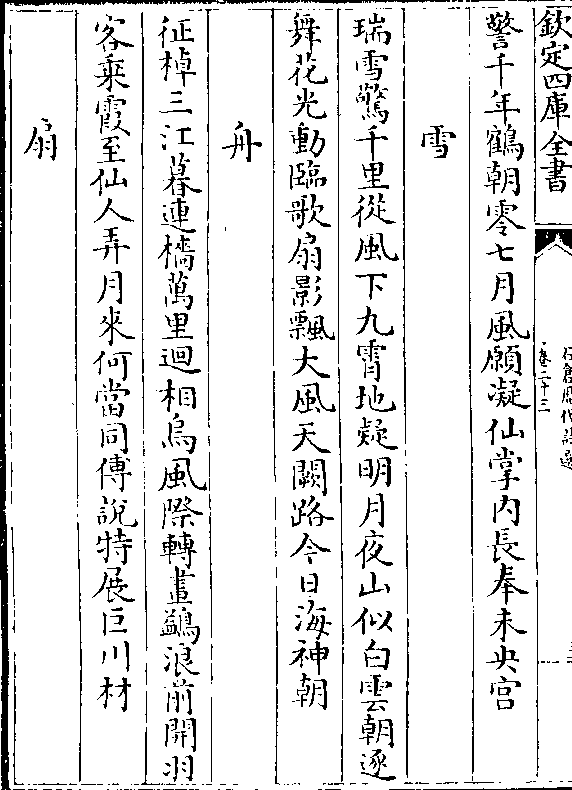 欽定四庫全書
石倉歷代詩選
卷二十三
警千年鶴朝零七月風願凝仙掌内長奉未央宫
雪
瑞雪驚千里從風下九霄地疑明月夜山似白雲朝逐
舞花光動臨歌扇影飄大風天闕路今日海神朝
舟
征棹三江暮連檣萬里迴相烏風際轉畫鷁浪前開羽
客乘霞至仙人弄月來何當同傅說特展巨川材
扇